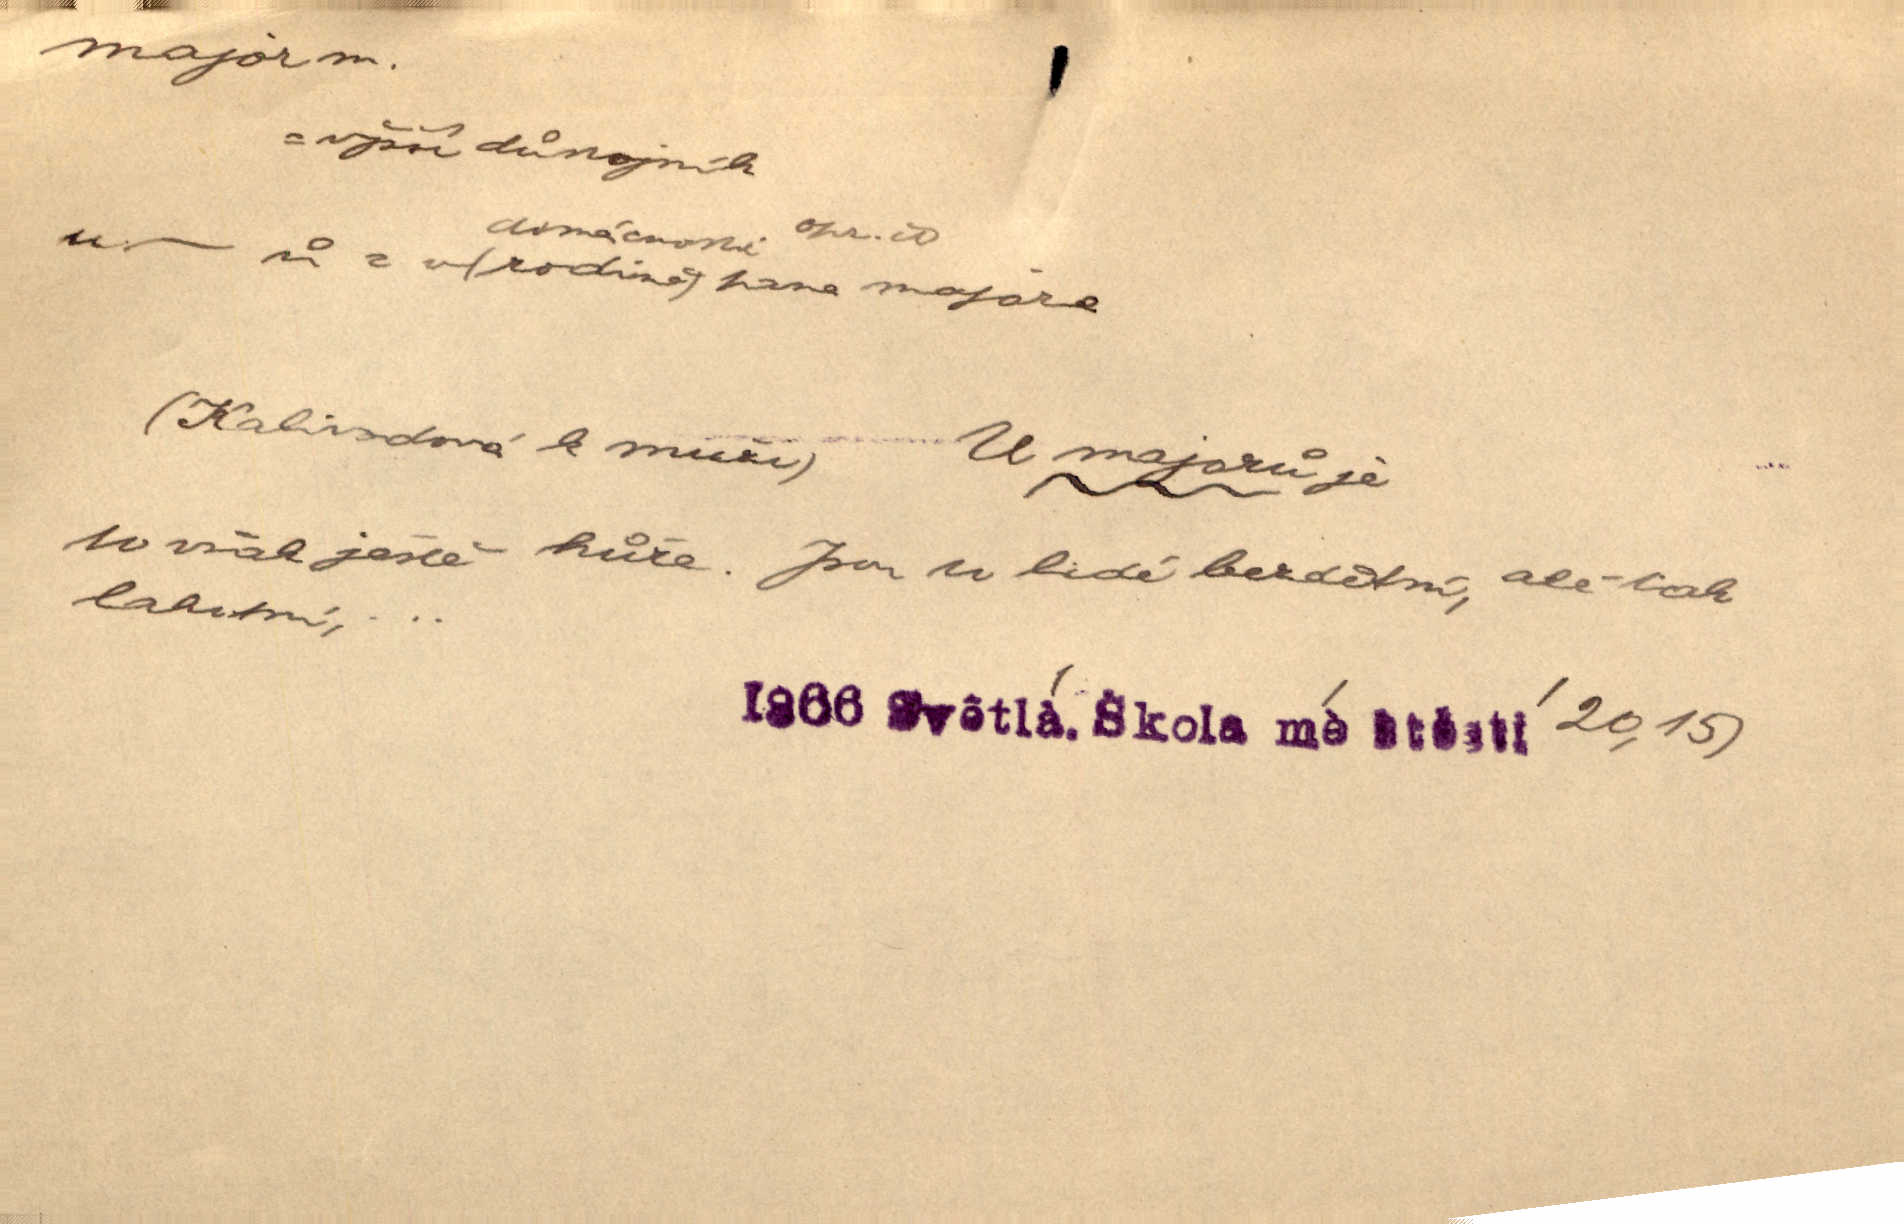 majór m.
= vyšší důstojník
domácnosti opr.
u — ů = v (rodině) pana majora
(Kalivodová k muži) U majorů je
to však ještě hůře. Jsou to lidé bezdětní, ale tak
lakotní, ...
1866 Světlá. Škola mé štěstí 20, 15)